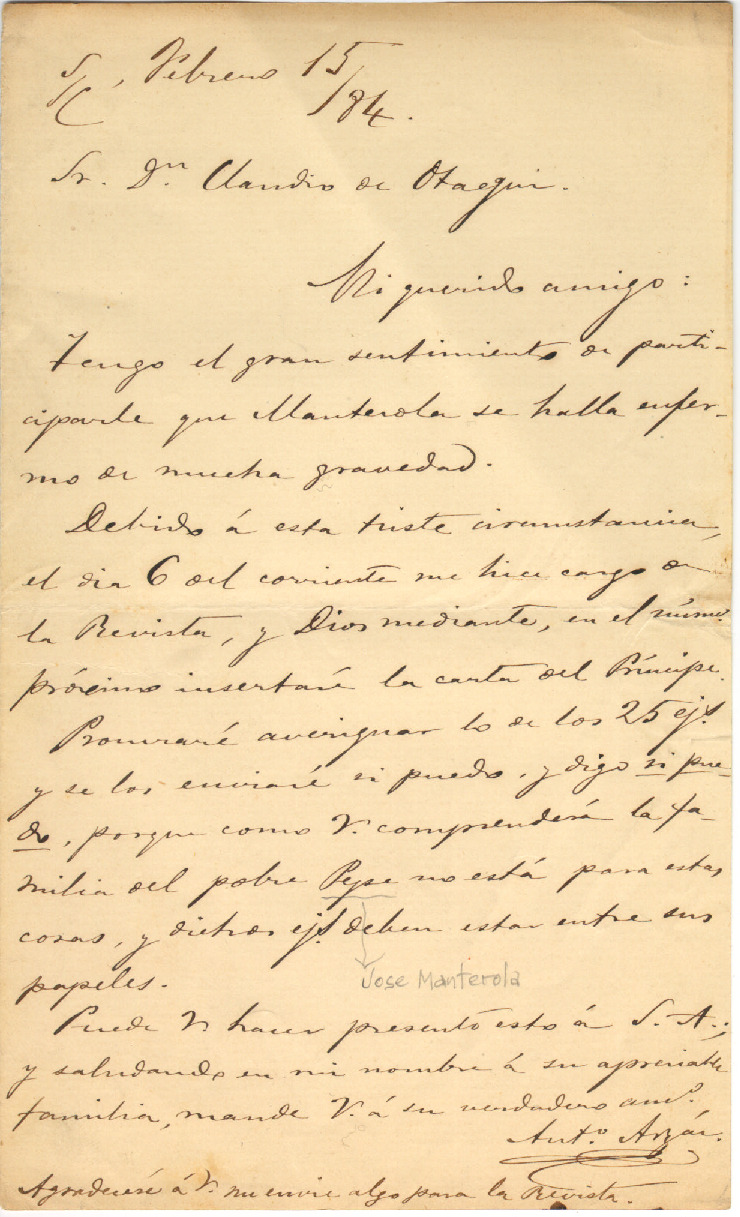 S/C, Febrero 15/84.
Sr. Dn. Claudio de Otaegui.
Mi querido amigo:
Tengo el gran sentimiento de parti-
ciparle que Manterola se halla enfer-
mo de mucha gravedad.
Debido á esta triste circunstancia,
el dia 6 del corriente me hice cargo de
la Revista, y Dios mediante, en el núm.o
próximo insertaré la carta del Príncipe.
Procuraré averiguar lo de los 25 ejs.
y se los enviaré si puedo, y digo si pue-
do, porque como V. comprenderá la fa-
milia del pobre Pepe no está para estas
cosas, y dichos ejs. deben estar entre sus
papeles.
Jose Manterola
Puede V. hacer presente esto á S. A.,
y saludando en mi nombre á su apreciable
familia, mande V. á su verdadero am.o
Ant.o Arzác.
Agradeceré á V. me envie algo para la Revista.